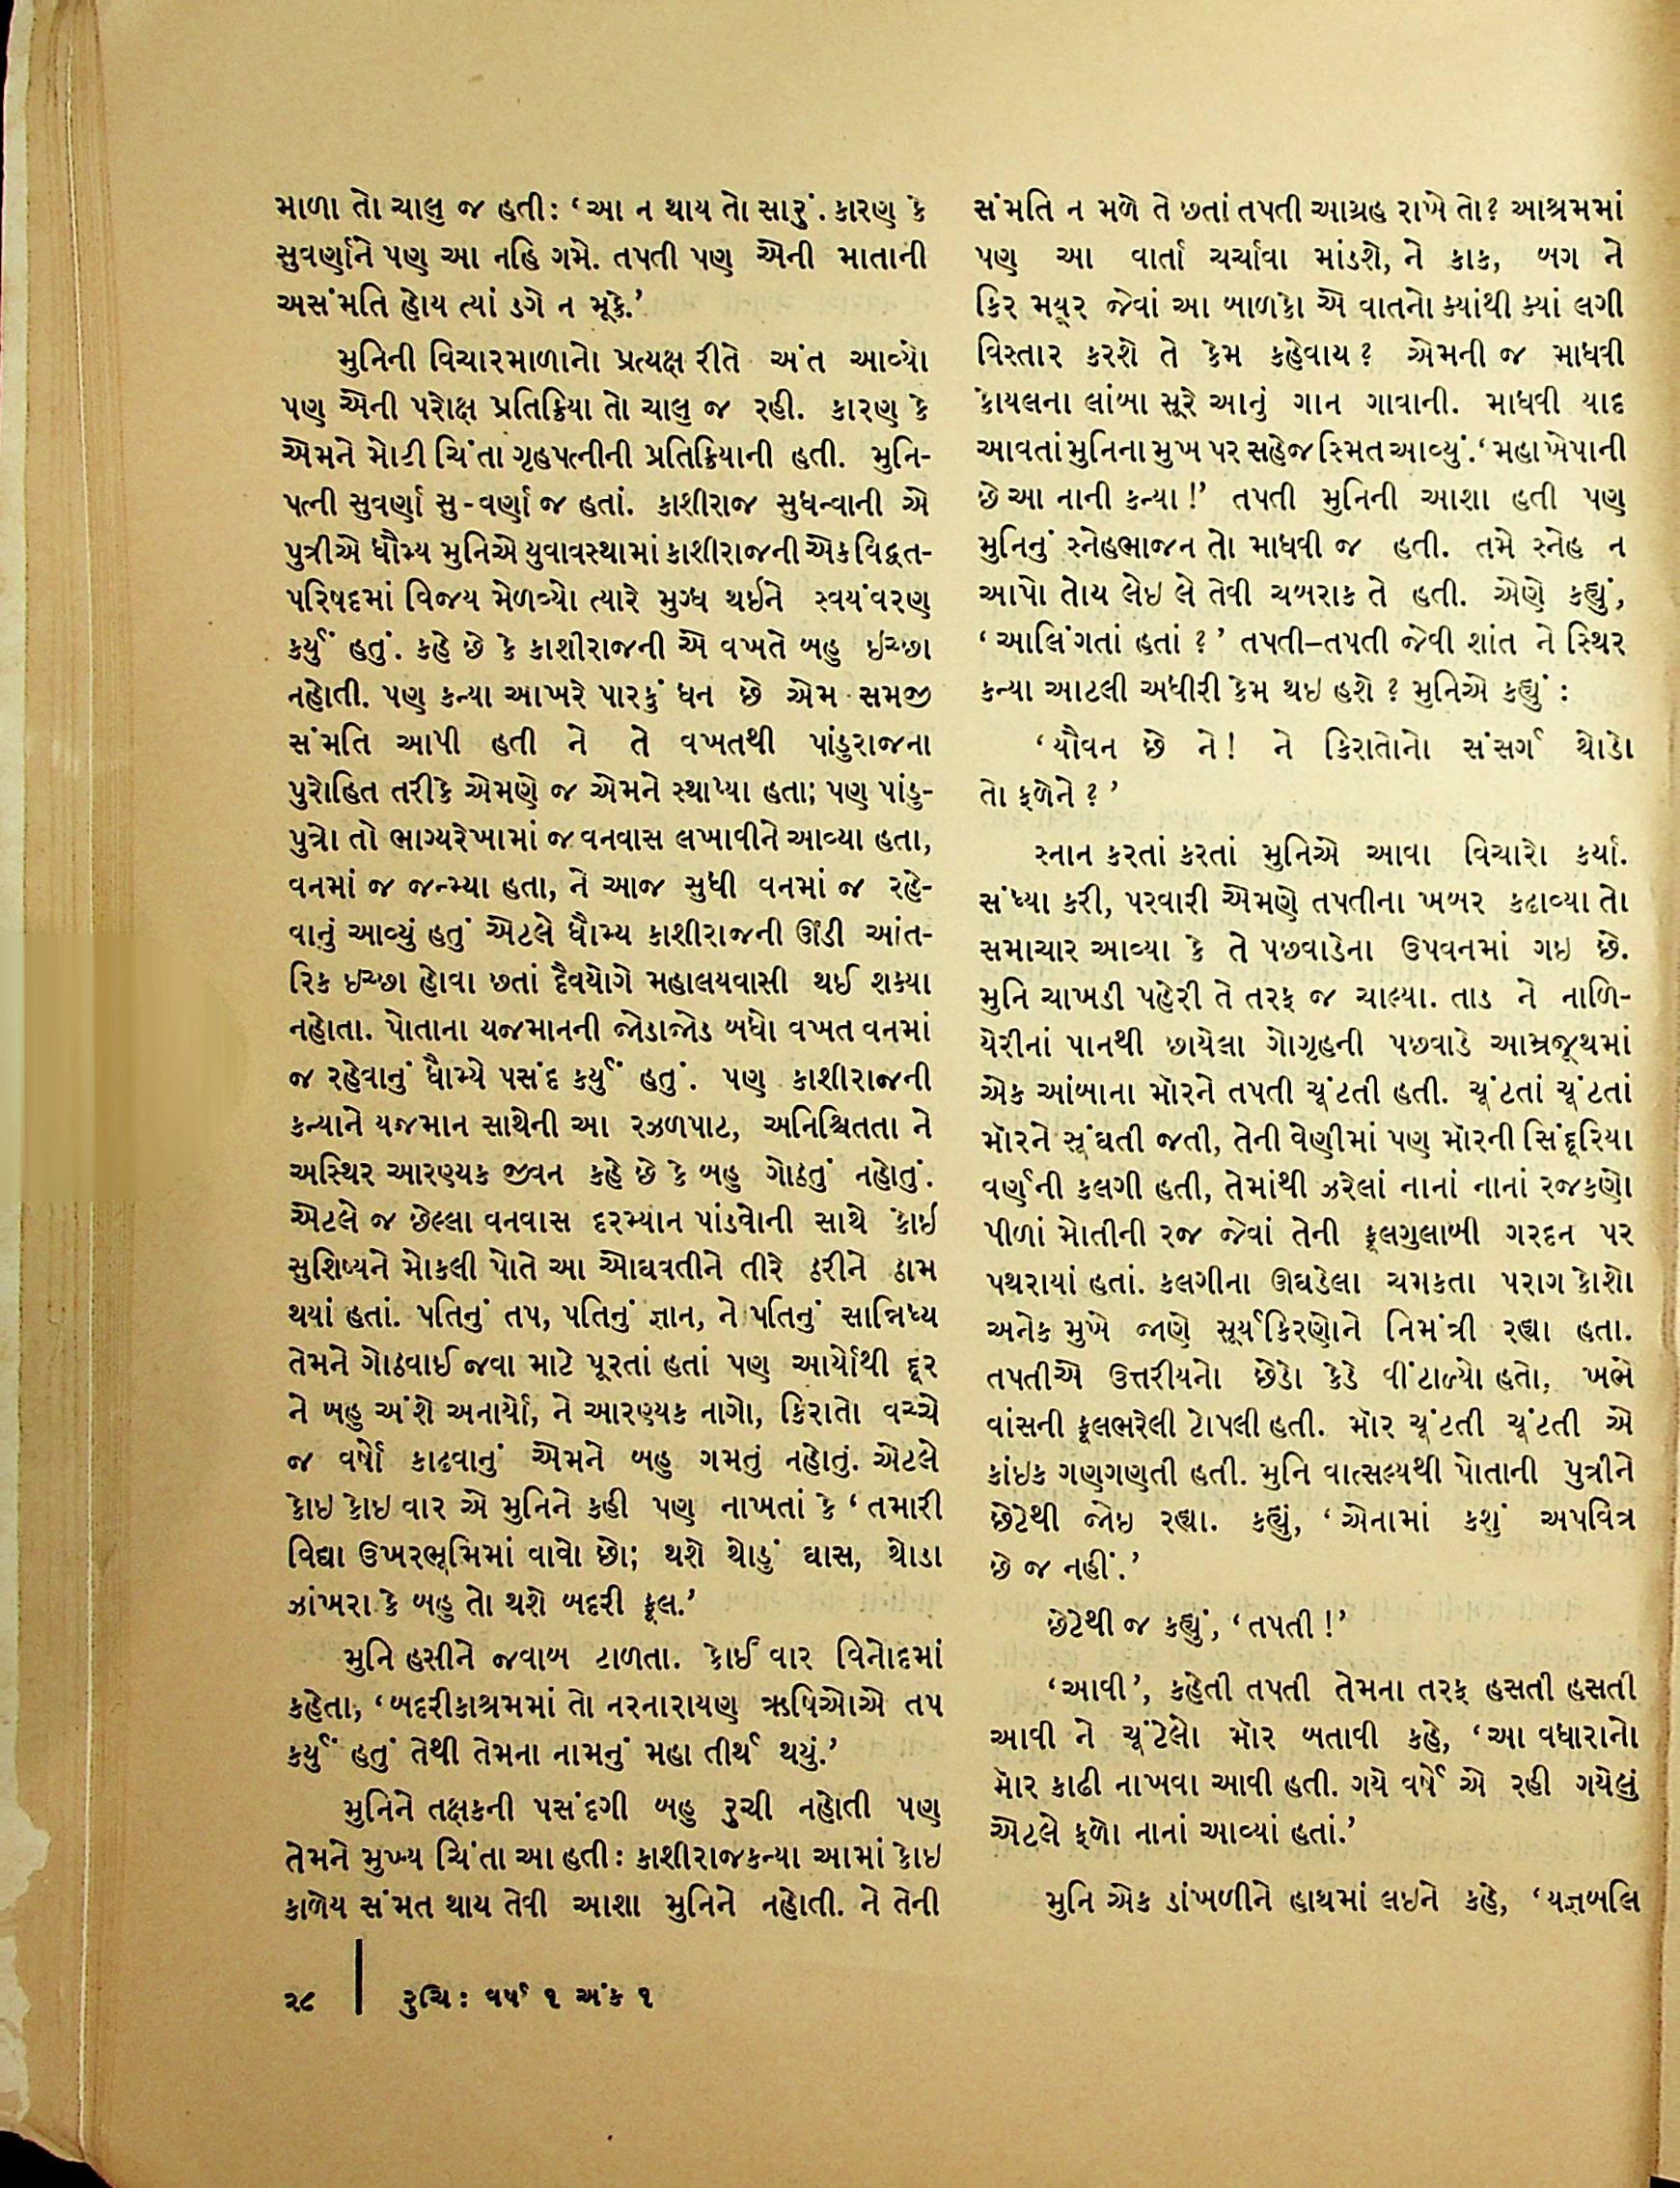 માળા તો ચાલુ જ હતી: ‘આ ન થાય તો સારું. કારણ કે
સુવર્ણાને પણ આ નહિ ગમે. તપતી પણ એની માતાની
અસંમતિ હોય ત્યાં ડગે ન મૂકે.’
મુનિની વિચારમાળાનો પ્રત્યક્ષ રીતે અંત આવ્યો
પણ એની પરોક્ષ પ્રતિક્રિયા તો ચાલુ જ રહી. કારણ કે
એમને મોટી ચિંતા ગૃહપત્નીની પ્રતિક્રિયાની હતી. મુનિ-
પત્ની સુવર્ણા સુ-વર્ણા જ હતાં. કાશીરાજ સુધન્વાની એ
પુત્રીએ ધૌમ્ય મુનિએ યુવાવસ્થામાં કાશીરાજની એક વિદ્વત-
પરિષદમાં વિજય મેળવ્યો ત્યારે મુગ્ધ થઈને સ્વયંવરણ
કર્યું હતું. કહે છે કે કાશીરાજની એ વખતે બહુ ઇચ્છા
નહોતી. પણ કન્યા આખરે પારકું ધન છે એમ સમજી
સંમતિ આપી હતી ને તે વખતથી પાંડુરાજના
પુરોહિત તરીકે એમણે જ એમને સ્થાપ્યા હતા; પણ પાંડુ-
પુત્રો તો ભાગ્યરેખામાં જ વનવાસ લખાવીને આવ્યા હતા,
વનમાં જ જન્મ્યા હતા, ને આજ સુધી વનમાં જ રહે-
વાનું આવ્યું હતું એટલે ધૌમ્ય કાશીરાજની ઊંડી આંત-
રિક ઇચ્છા હોવા છતાં દૈવયોગે મહાલયવાસી થઈ શક્યા
નહોતા. પોતાના યજમાનની જોડાજોડ બધો વખત વનમાં
જ રહેવાનું ધૌમ્યે પસંદ કર્યું હતું. પણ કાશીરાજની
કન્યાને યજમાન સાથેની આ રઝળપાટ, અનિશ્ચિતતા ને
અસ્થિર આરણ્યક જીવન કહે છે કે બહુ ગોઠતું નહોતું.
એટલે જ છેલ્લા વનવાસ દરમ્યાન પાંડવોની સાથે કોઇ
સુશિષ્યને મોકલી પોતે આ ઓઘવતીને તીરે ઠરીને ઠામ
થયાં હતાં. પતિનું તપ, પતિનું જ્ઞાન, ને પતિનું સાન્નિધ્ય
તેમને ગોઠવાઈ જવા માટે પૂરતાં હતાં પણ આર્યોથી દૂર
ને બહુ અંશે અનાર્યો, ને આરણ્યક નાગો, કિરાતો વચ્ચે
જ વર્ષો કાઢવાનું એમને બહુ ગમતું નહોતું. એટલે
કોઇ કોઇ વાર એ મુનિને કહી પણ નાખતાં કે ‘તમારી
વિદ્યા ઉખરભૂમિમાં વાવો છો; થશે થોડું ઘાસ, થોડા
ઝાંખરા કે બહુ તો થશે બદરી ફૂલ.’
મુનિ હસીને જવાબ ટાળતા. કોઈ વાર વિનોદમાં
કહેતા, ‘બદરીકાશ્રમમાં તો નરનારાયણ ઋષિઓએ તપ
કર્યું હતું તેથી તેમના નામનું મહા તીર્થ થયું.’
મુનિને તક્ષકની પસંદગી બહુ રુચી નહોતી પણ
તેમને મુખ્ય ચિંતા આ હતી: કાશીરાજકન્યા આમાં કોઇ
કાળેય સંમત થાય તેવી આશા મુનિને નહોતી. ને તેની
સંમતિ ન મળે તે છતાં તપતી આગ્રહ રાખે તો? આશ્રમમાં
પણ આ વાર્તા ચર્ચાવા માંડશે, ને કાક, બગ ને
કિર મયૂર જેવાં આ બાળકો એ વાતનો ક્યાંથી ક્યાં લગી
વિસ્તાર કરશે તે કેમ કહેવાય? એમની જ માધવી
કોયલના લાંબા સૂરે આનું ગાન ગાવાની. માધવી યાદ
આવતાં મુનિના મુખ પર સહેજ સ્મિત આવ્યું. ‘મહા ખેપાની
છે આ નાની કન્યા!’ તપતી મુનિની આશા હતી પણ
મુનિનું સ્નેહભાજન તો માધવી જ હતી. તમે સ્નેહ ન
આપો તોય લેઇ લે તેવી ચબરાક તે હતી. એણે કહ્યું,
‘આલિંગતાં હતાં?’ તપતી–તપતી જેવી શાંત ને સ્થિર
કન્યા આટલી અધીરી કેમ થઇ હશે? મુનિએ કહ્યું:
‘યૌવન છે ને! ને કિરાતોનો સંસર્ગ થોડો
તો ફળેને?’
સ્નાન કરતાં કરતાં મુનિએ આવા વિચારો કર્યા.
સંધ્યા કરી, પરવારી એમણે તપતીના ખબર કઢાવ્યા તો
સમાચાર આવ્યા કે તે પછવાડેના ઉપવનમાં ગઇ છે.
મુનિ ચાખડી પહેરી તે તરફ જ ચાલ્યા. તાડ ને નાળિ-
યેરીનાં પાનથી છાયેલા ગોગૃહની પછવાડે આમ્રજૂથમાં
એક આંબાના મૉરને તપતી ચૂંટતી હતી. ચૂંટતાં ચૂંટતાં
મૉરને સૂંઘતી જતી, તેની વેણીમાં પણ મૉરની સિંદૂરિયા
વર્ણની કલગી હતી, તેમાંથી ઝરેલાં નાનાં નાનાં રજકણો
પીળાં મોતીની રજ જેવાં તેની ફૂલગુલાબી ગરદન પર
પથરાયાં હતાં. કલગીના ઊઘડેલા ચમકતા પરાગ કોશો
અનેક મુખે જાણે સૂર્યકિરણોને નિમંત્રી રહ્યા હતા.
તપતીએ ઉત્તરીયનો છેડો કેડે વીંટાળ્યો હતો, ખભે
વાંસની ફૂલભરેલી ટોપલી હતી. મૉર ચૂંટતી ચૂંટતી એ
કાંઇક ગણગણતી હતી. મુનિ વાત્સલ્યથી પોતાની પુત્રીને
છેટેથી જોઇ રહ્યા. કહ્યું, ‘એનામાં કશું અપવિત્ર
છે જ નહીં.’
છેટેથી જ કહ્યું, ‘તપતી!’
‘આવી’, કહેતી તપતી તેમના તરફ હસતી હસતી
આવી ને ચૂંટેલો મૉર બતાવી કહે, ‘આ વધારાનો
મૉર કાઢી નાખવા આવી હતી. ગયે વર્ષે એ રહી ગયેલું
એટલે ફળો નાનાં આવ્યાં હતાં.’
મુનિ એક ડાંખળીને હાથમાં લઇને કહે, ‘યજ્ઞબલિ
૨૮ રુચિ: વર્ષ ૧ અંક ૧